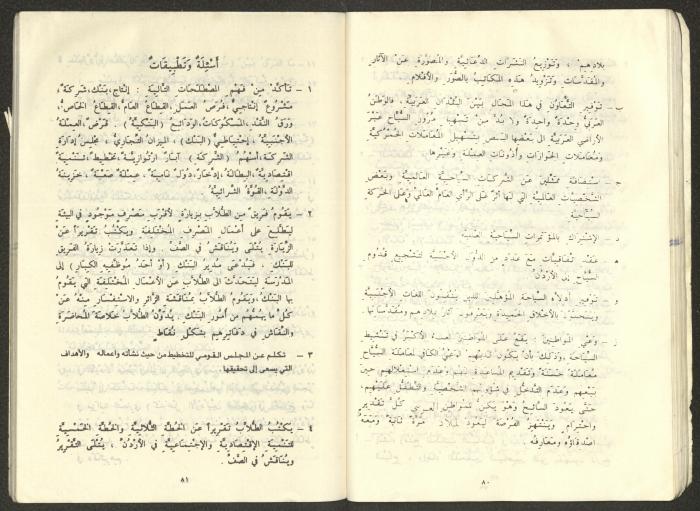 بلادهم ، وتوزيع النشرات الدعائية والمصورة عن الآثار
والمقدسات وتزويد هذه المكاتب بالصور والأفلام .
ب – توفير التعاون في هذا المجال بين البلدان العربية ، فالوطن
العربي وحدة واحدة ولا بد من تسهيل مرور السياح عبر
الأراضي العربية الى بعضها البعض بتسهيل المعاملات الجمركية
ومعاملات الجوازات وأذونات العملة وغيرها .
ج – استضافة ممثلين عن الشركات السياحية العالمية وبعض
الشخصيات العالمية التي لها أثر على الرأي العام العالمي وعلى الحركة
السياحية
د – الاشتراك بالمؤتمرات السياحية العالمية
ه – عقد اتفاقيات مع عدد من الدول الأجنبية لتشجيع قدوم
السياح إلى الأردن
و – توفير أدلاء السياحة المؤهلين الذين يتقنون اللغات الأجنبية
ويتحلون بالأخلاق الحميدة ويعرفون آثار بلادهم ومقدساتها .
ز – وعي المواطنين : يقع على المواطنين العبء الأكبر في تنشيط
السياحة ، وذلك بأن يكون لديهم الوعي الكافي لمعاملة السياح
معاملة حسنة وتقديم المساعدة لهم وعدم استغلالهم حين
بيعهم وعدم التدخل في شؤونهم الشخصية والتطفل عليهم ،
حتى يعود السائح وهو يكن للمواطن العربي كل تقدير
واحترام وينتهز الفرصة ليعود للبلاد مرة ثانية ومعه
أصدقاؤه ومعارفه .
٨٠
أسئلة وتطبيقات
١ – تأكد من فهم المصطلحات التالية : إنتاج ، بنك ، شركة ،
مشروع إنتاجي ، فرص العمل ، القطاع العام ، القطاع الخاص ،
ورق النقد ، المسكوكات ، الودائع ( البنكية ) . قرض ، العملة
الأجنبية ، إحتياطي ( البنك ) ، الميزان التجاري ، مجلس إدارة
الشركة ، أسهم ( الشركة ) آبار ارتوازية ، تخطيط ، تنمية
اقتصادية ، البطالة ، إدخار ، دول نامية ، عملة صعبة ، خزينة
الدولة ، القوة الشرائية
٢ – يقوم فريق من الطلاب بزيارة لأقرب مصرف موجود في البيئة
ليطلع على أعمال المصرف المختلفة ويكتب تقريراً عن
الزيارة يتلى ويناقش في الصف . وإذا تعذرت زيارة الفريق
للبنك ، فيدعى مدير البنك ( أو أحد موظفيه الكبار ) إلى
المدرسة ليتحدث الى الطلاب عن الأعمال المختلفة التي يقوم
بها البنك ، ويقوم الطلاب بمناقشة الزائر والاستفسار منه عن
كل ما يهمهم من أمور البنك . يدون الطلاب خلاصة المحاضرة
والنقاش في دفاترهم بشكل نقاط
٣ – تكلم عن المجلس القومي للتخطيط من حيث نشأته واعماله والأهداف
التي يسعى إلى تحقيقها .
٤ – يكتب الطلاب تقريراً عن الخطة الثلاثية والخطة الخمسية
للتنمية الإقتصادية والإجتماعية في الأردن ، يتلى التقرير
ويناقش في الصف .
٨١